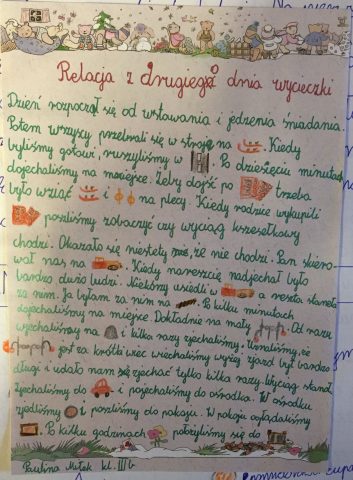 Relacja z drugiego dnia wycieczki
Dzień rozpoczął się od wstawania i jedzenia śniadania.
Potem wszyscy przebrali się w stroje na Kiedy
byliśmy gotowi, ruszyliśmy w Po dziesięciu minutach
dojechaliśmy na miejsce. Żeby dojść po trzeba
było wziąć i na plecy. Kiedy rodzice wykupili
poszliśmy zobaczyć czy wyciąg krzesełkowy
chodzi. Okazało się niestety, że nie chodzi. Pan skiero-
wał nas na Kiedy nareszcie nadjechał było
bardzo dużo ludzi. Niektórzy usiedli w a reszta stanęła
za nim. Ja byłam za nim na P. kilku minutach
dojechaliśmy na miejsce. Dokładnie na mały Od razu
wjechaliśmy na i kilka razy zjechaliśmy. Uznaliśmy, że
jest za krótki więc wjechaliśmy wyżej zjazd był bardzo
długi i udało nam się zjechać tylko kilka razy. Wyciąg stanął.
Zjechaliśmy do i pojechaliśmy do ośrodka. W ośrodku
zjedliśmy i poszliśmy do pokoju. W pokoju oglądaliśmy
Po kilku godzinach położyliśmy się do
Paulina Miłek kl. III b